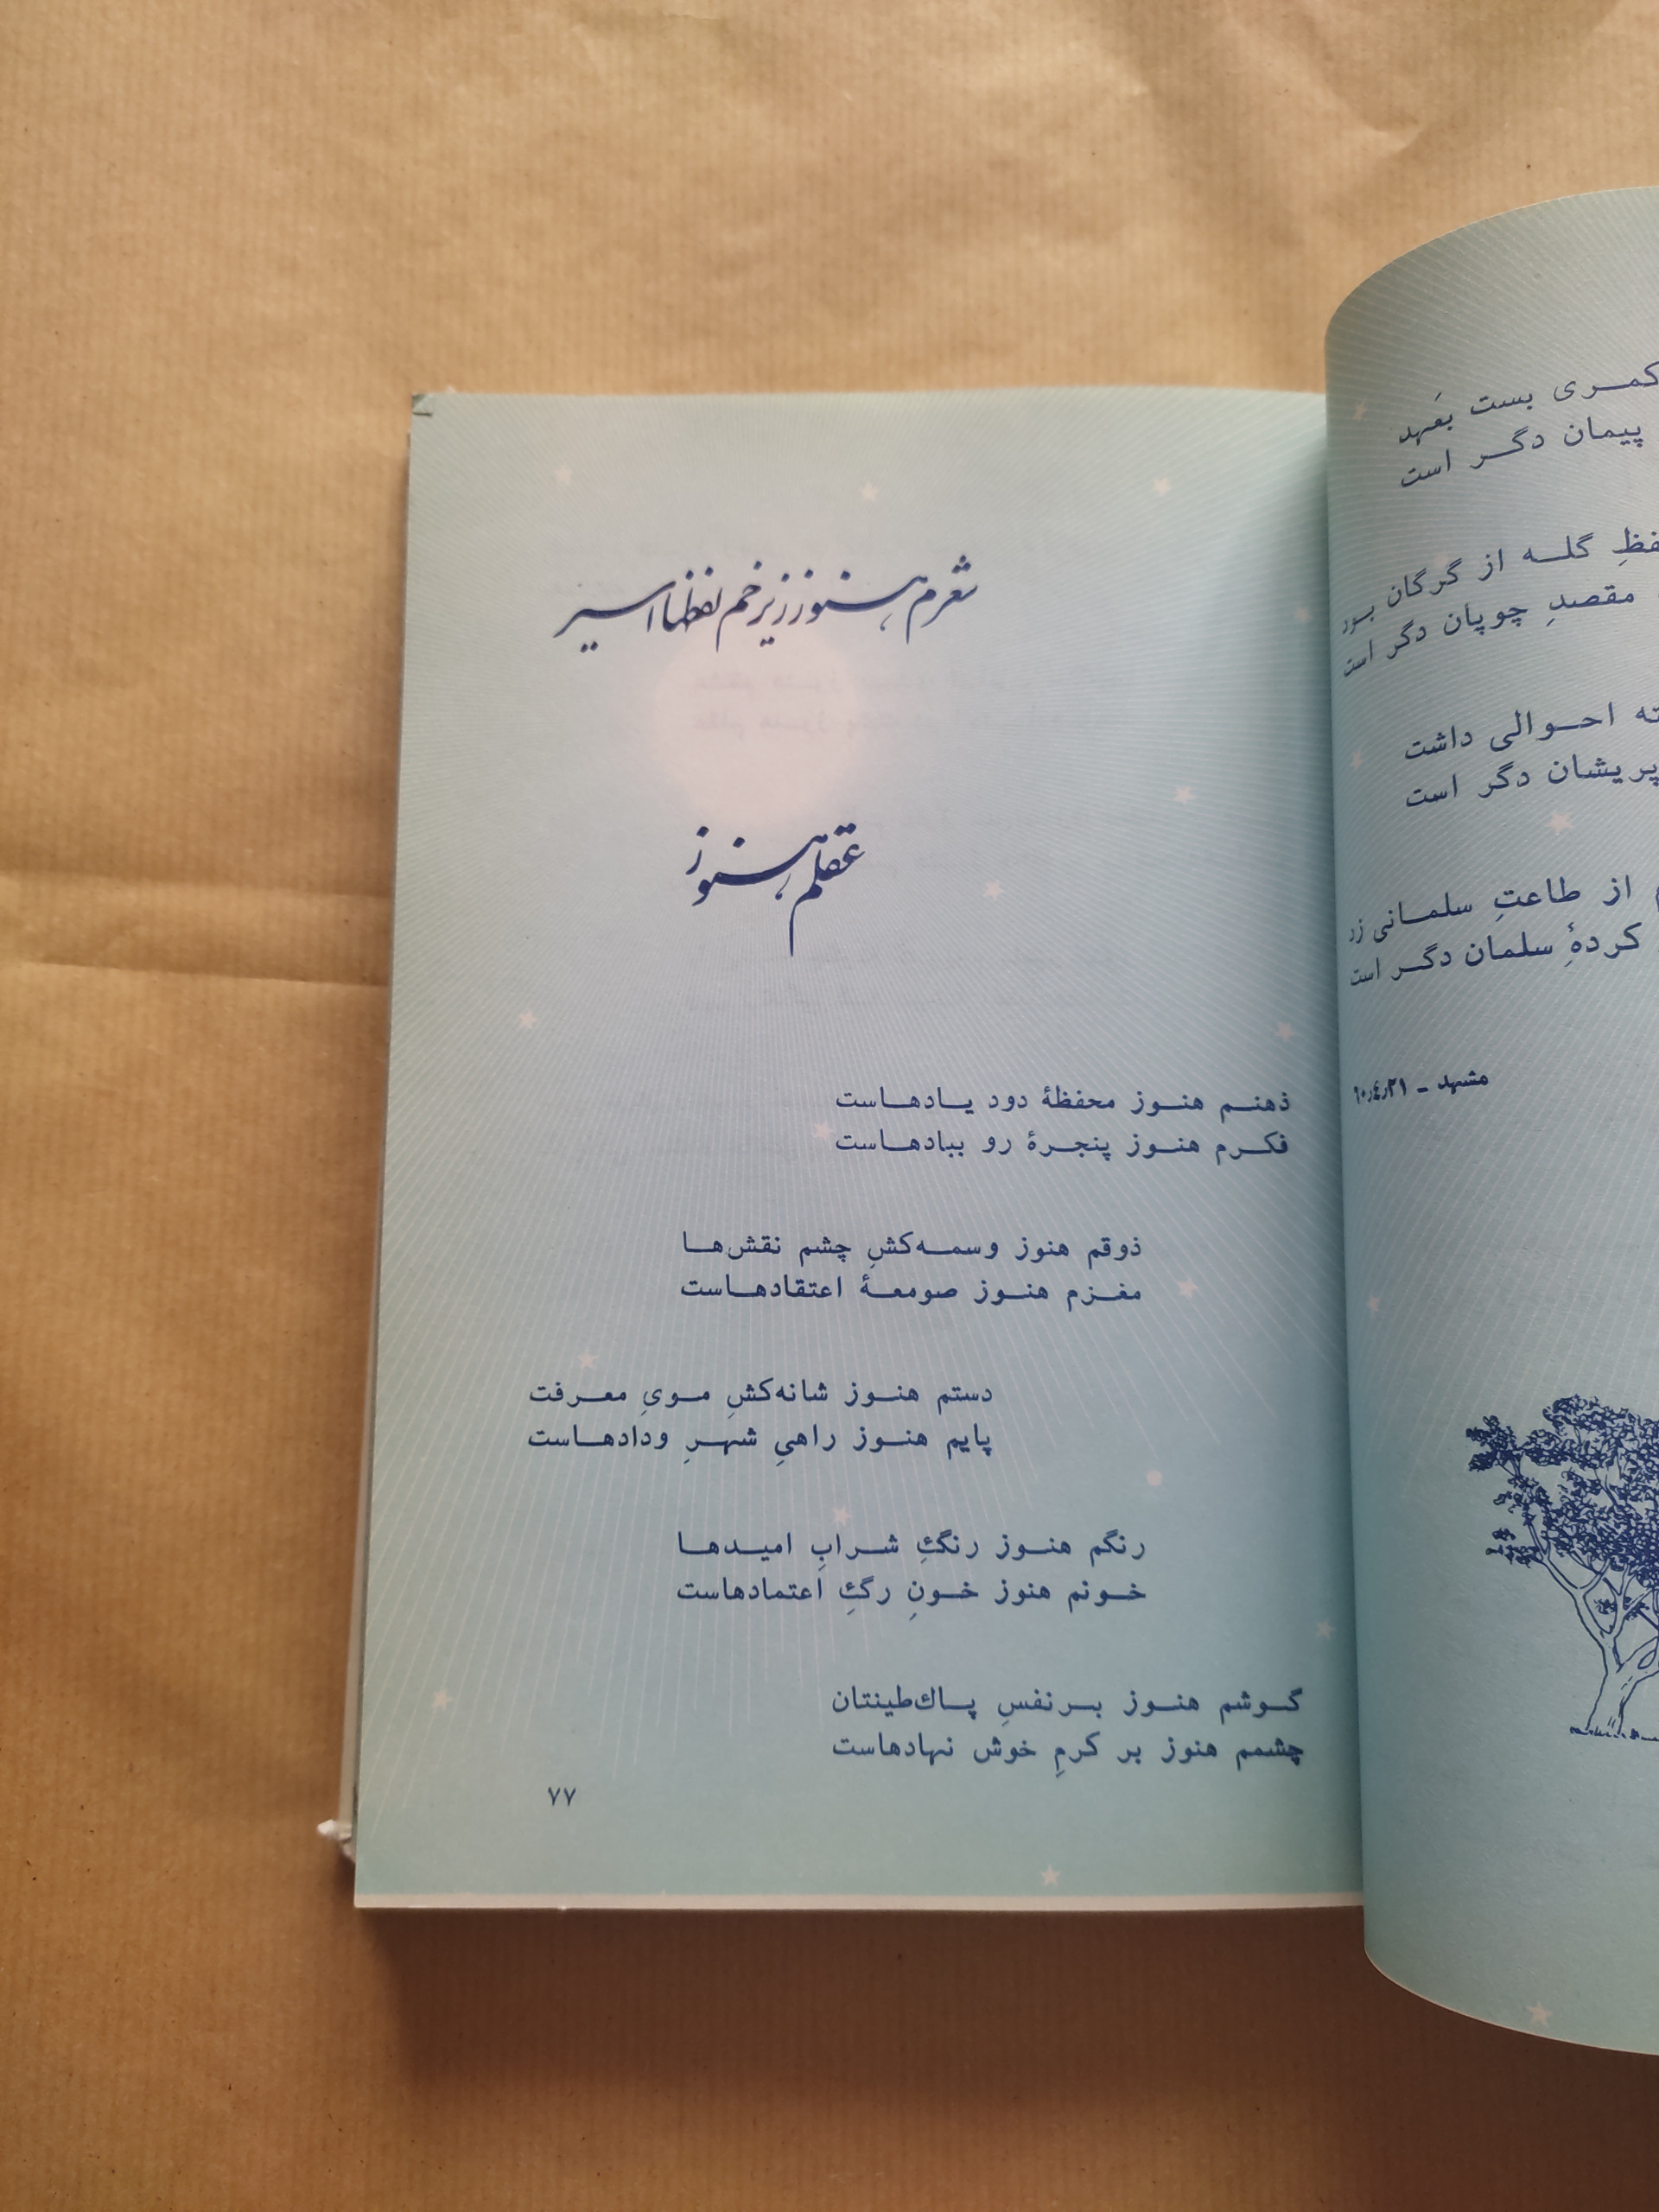 شعرم هنوز زیر خم لفظها اسیر
عقلم هنوز
ذهنـم هنـوز محفظهٔ دود یـادهـاست
فکـرم هنـوز پنجـرهٔ رو ببادهـاست
ذوقم هنوز وسمـه‌کشِ چشم نقش‌هـا
مغـزم هنـوز صومعـهٔ اعتقادهـاست
دستم هنـوز شانه‌کشِ مـویِ معـرفت
پایم هنـوز راهیِ شهـرِ ودادهـاست
رنگم هنـوز رنگِ شـرابِ امیـدهـا
خـونم هنوز خـونِ رگِ اعتمادهاست
گـوشم هنـوز بـر نفسِ پـاك‌طینتان
چشمم هنوز بر کرمِ خوش نهادهاست
۷۷
کمـری بست بعَهِد
پیمان دگـر است
گلـه از گرگان بـود
مقصدِ چوپان دگر است
احـوالی داشت
پریشان دگر است
از طاعتِ سلمـانی زد
کردهٔ سلمان دگـر است
مشهد ـ ۱۰٫۴٫۲۱